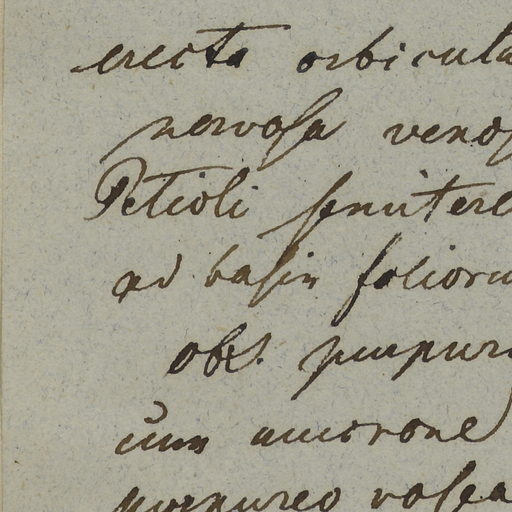 erecta orbicula
nervosa venos
Petioli semitere
ad basin folioru
obs. purpure
cum mucrone
purpureo rosea